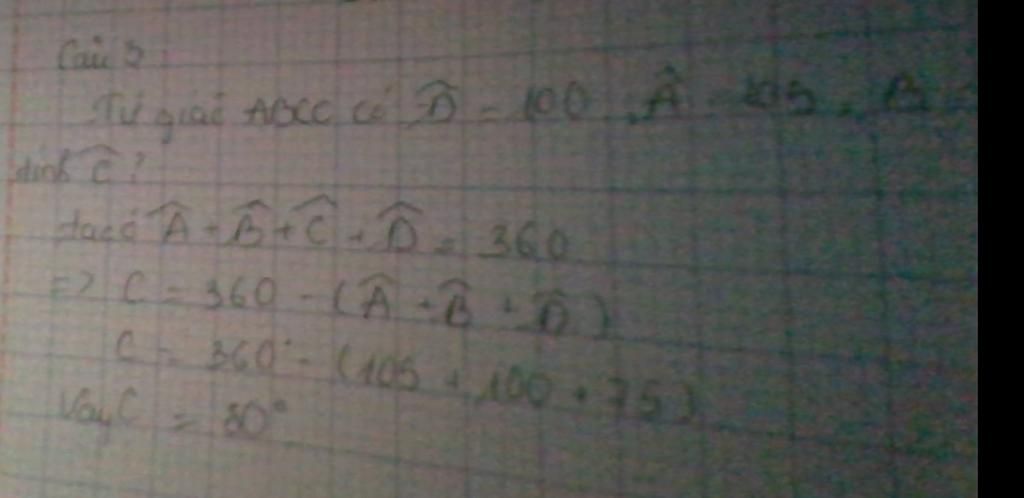 Câu 5
Tứ giác ABCC có D̂ = 100 Â = 105, B =
tính Ĉ?
ta có Â + B̂ + Ĉ + D̂ = 360
=> C = 360 - (Â + B̂ + D̂)
C = 360° - (105 + 100 + 75)
Vậy C = 80°